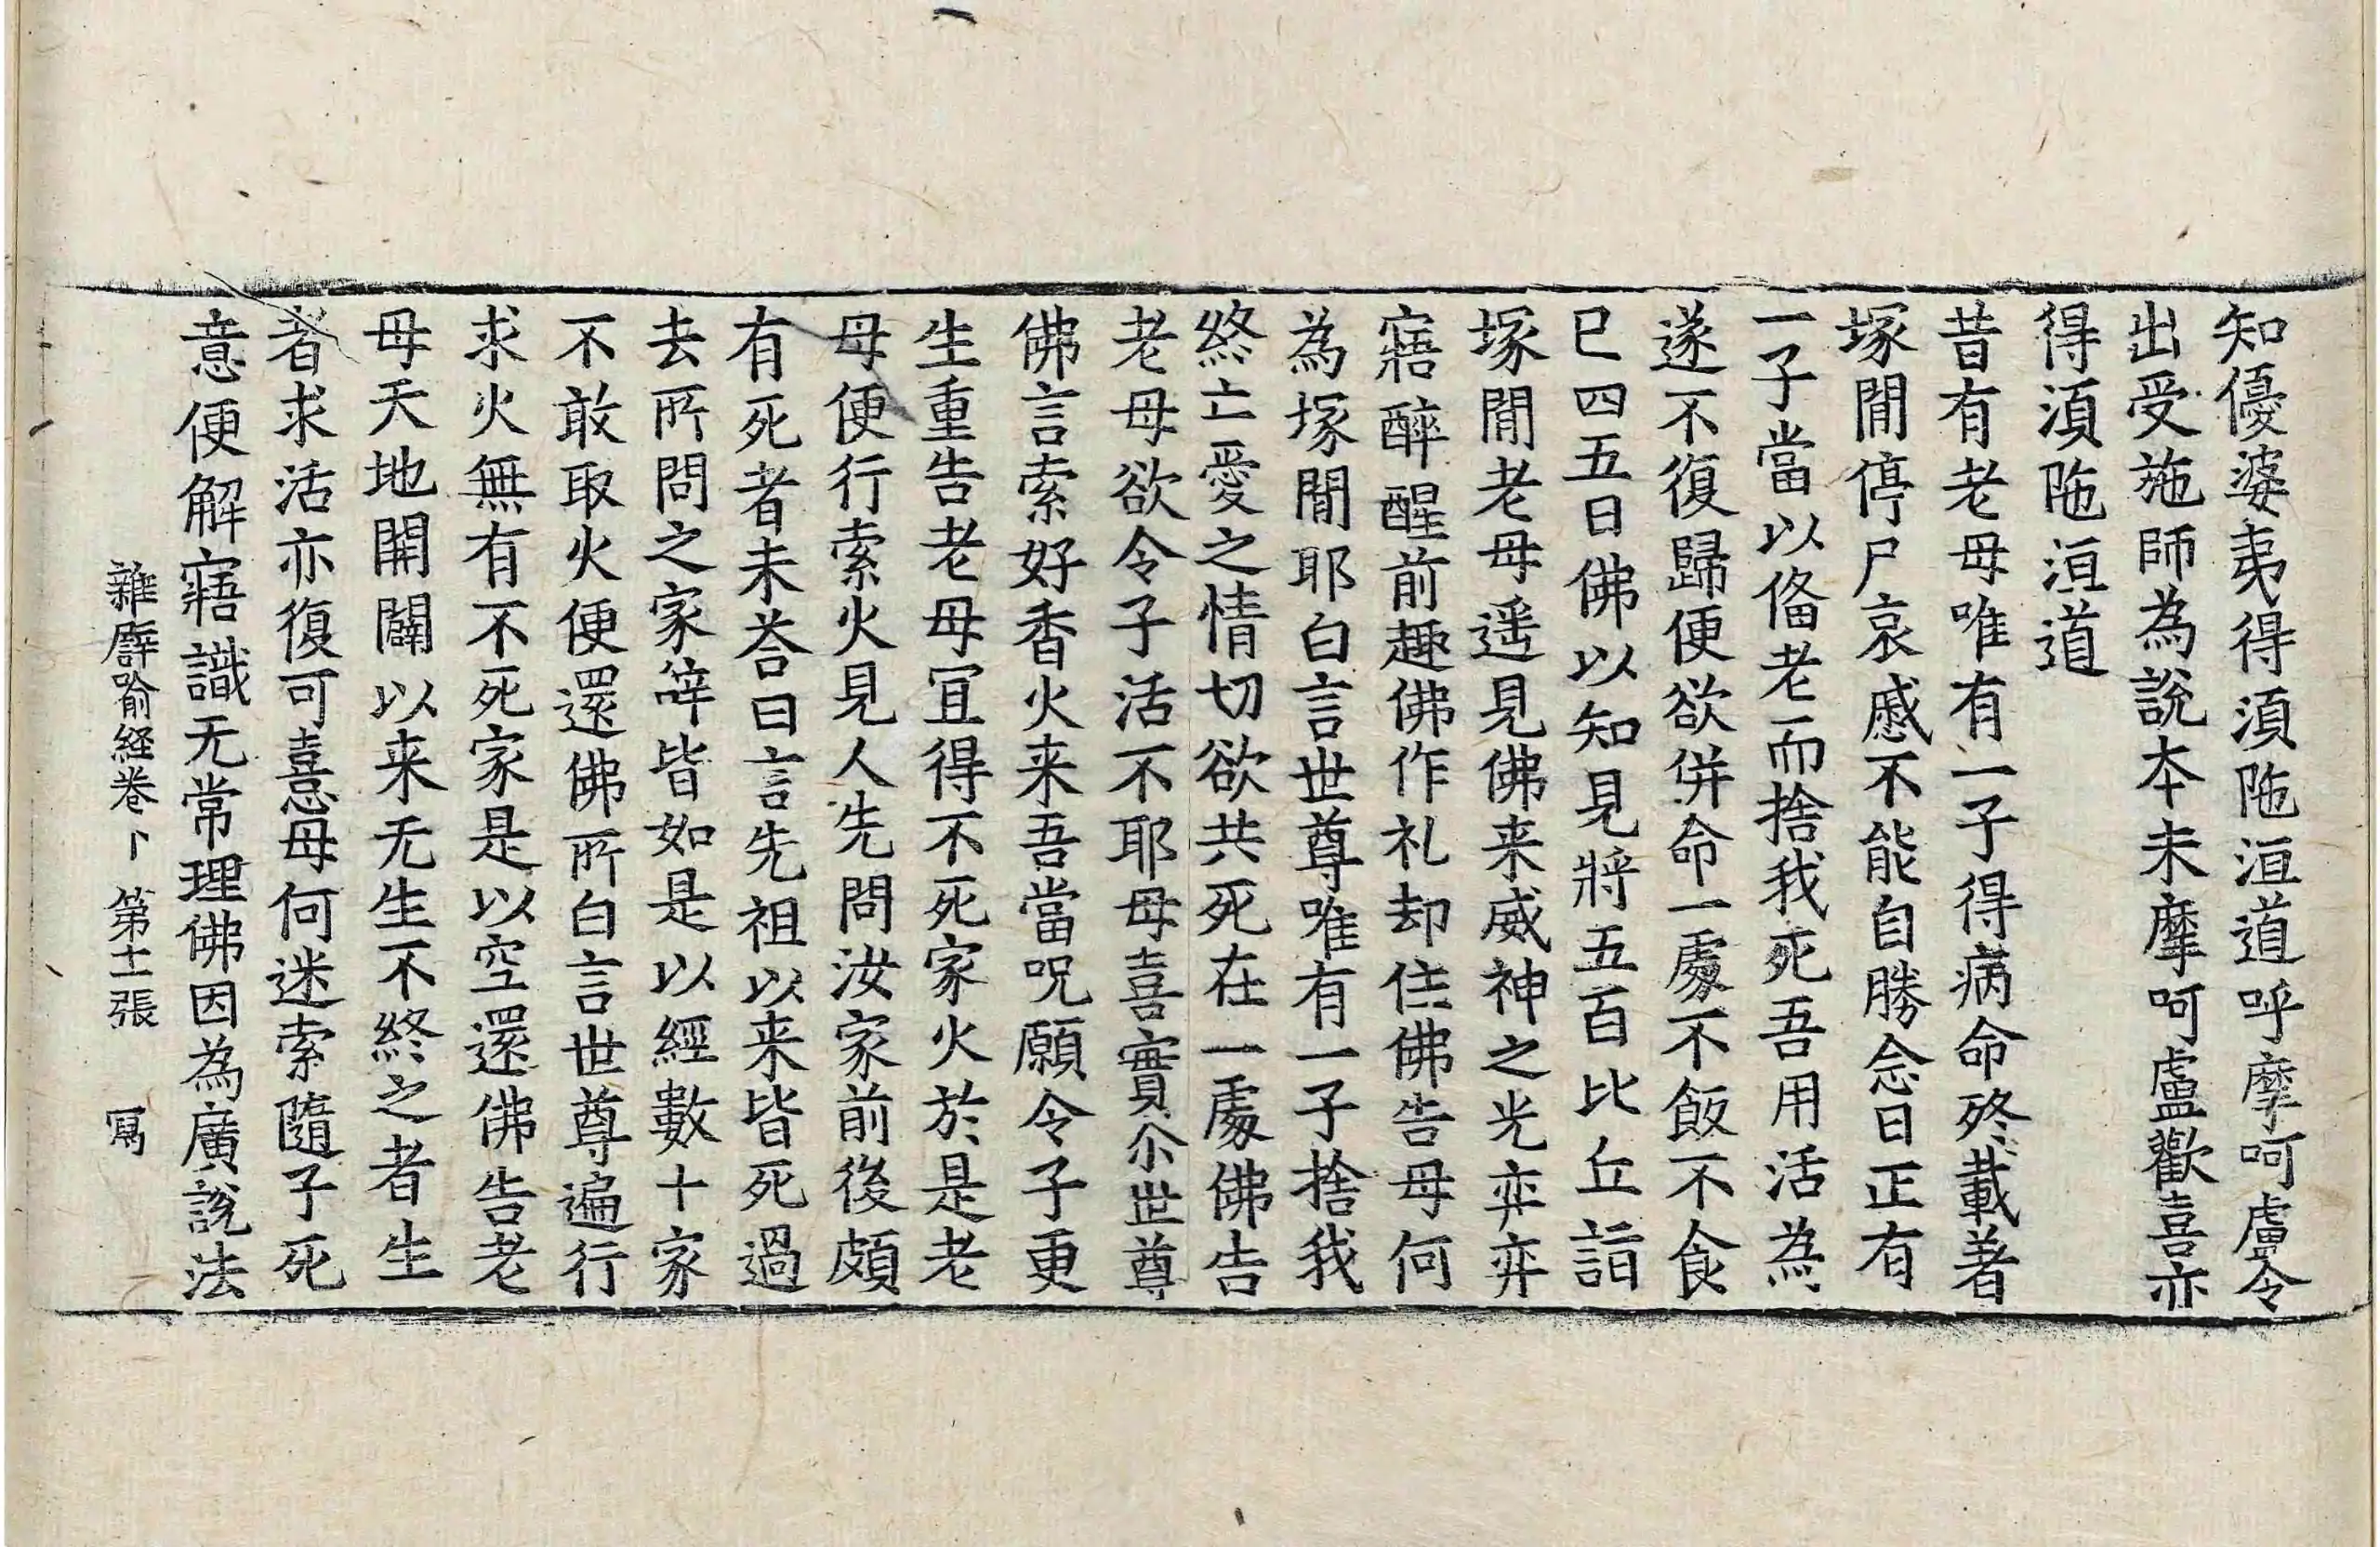 知優婆夷得湏陁洹道呼摩呵盧令
出受施師為說本末摩呵盧歡喜亦
得湏陁洹道
昔有老母唯有一子得病命終載著
塚閒停尸哀慼不能自勝念曰正有
一子當以俻老而捨我死吾用活為
遂不復歸便欲併命一處不飯不食
已四五日佛以知見將五百比丘詣
塚閒老母遥見佛来威神之光弈弈
寤醉醒前趣佛作礼却住佛告母何
為塚閒耶白言世尊唯有一子捨我
終亡愛之情切欲共死在一處佛告
老母欲令子活不耶母喜實尒世尊
佛言索好香火来吾當呪願令子更
生重告老母冝得不死家火於是老
母便行索火見人先問汝家前後頗
有死者未荅曰言先祖以来皆死過
去所問之家辝皆如是以經數十家
不敢取火便還佛所白言世尊遍行
求火無有不死家是以空還佛告老
母天地開闢以来无生不終之者生
者求活亦復可憙母何迷索隨子死
意便解寤識无常理佛因為廣說法
雜譬喻経卷卜 第十一張 冩